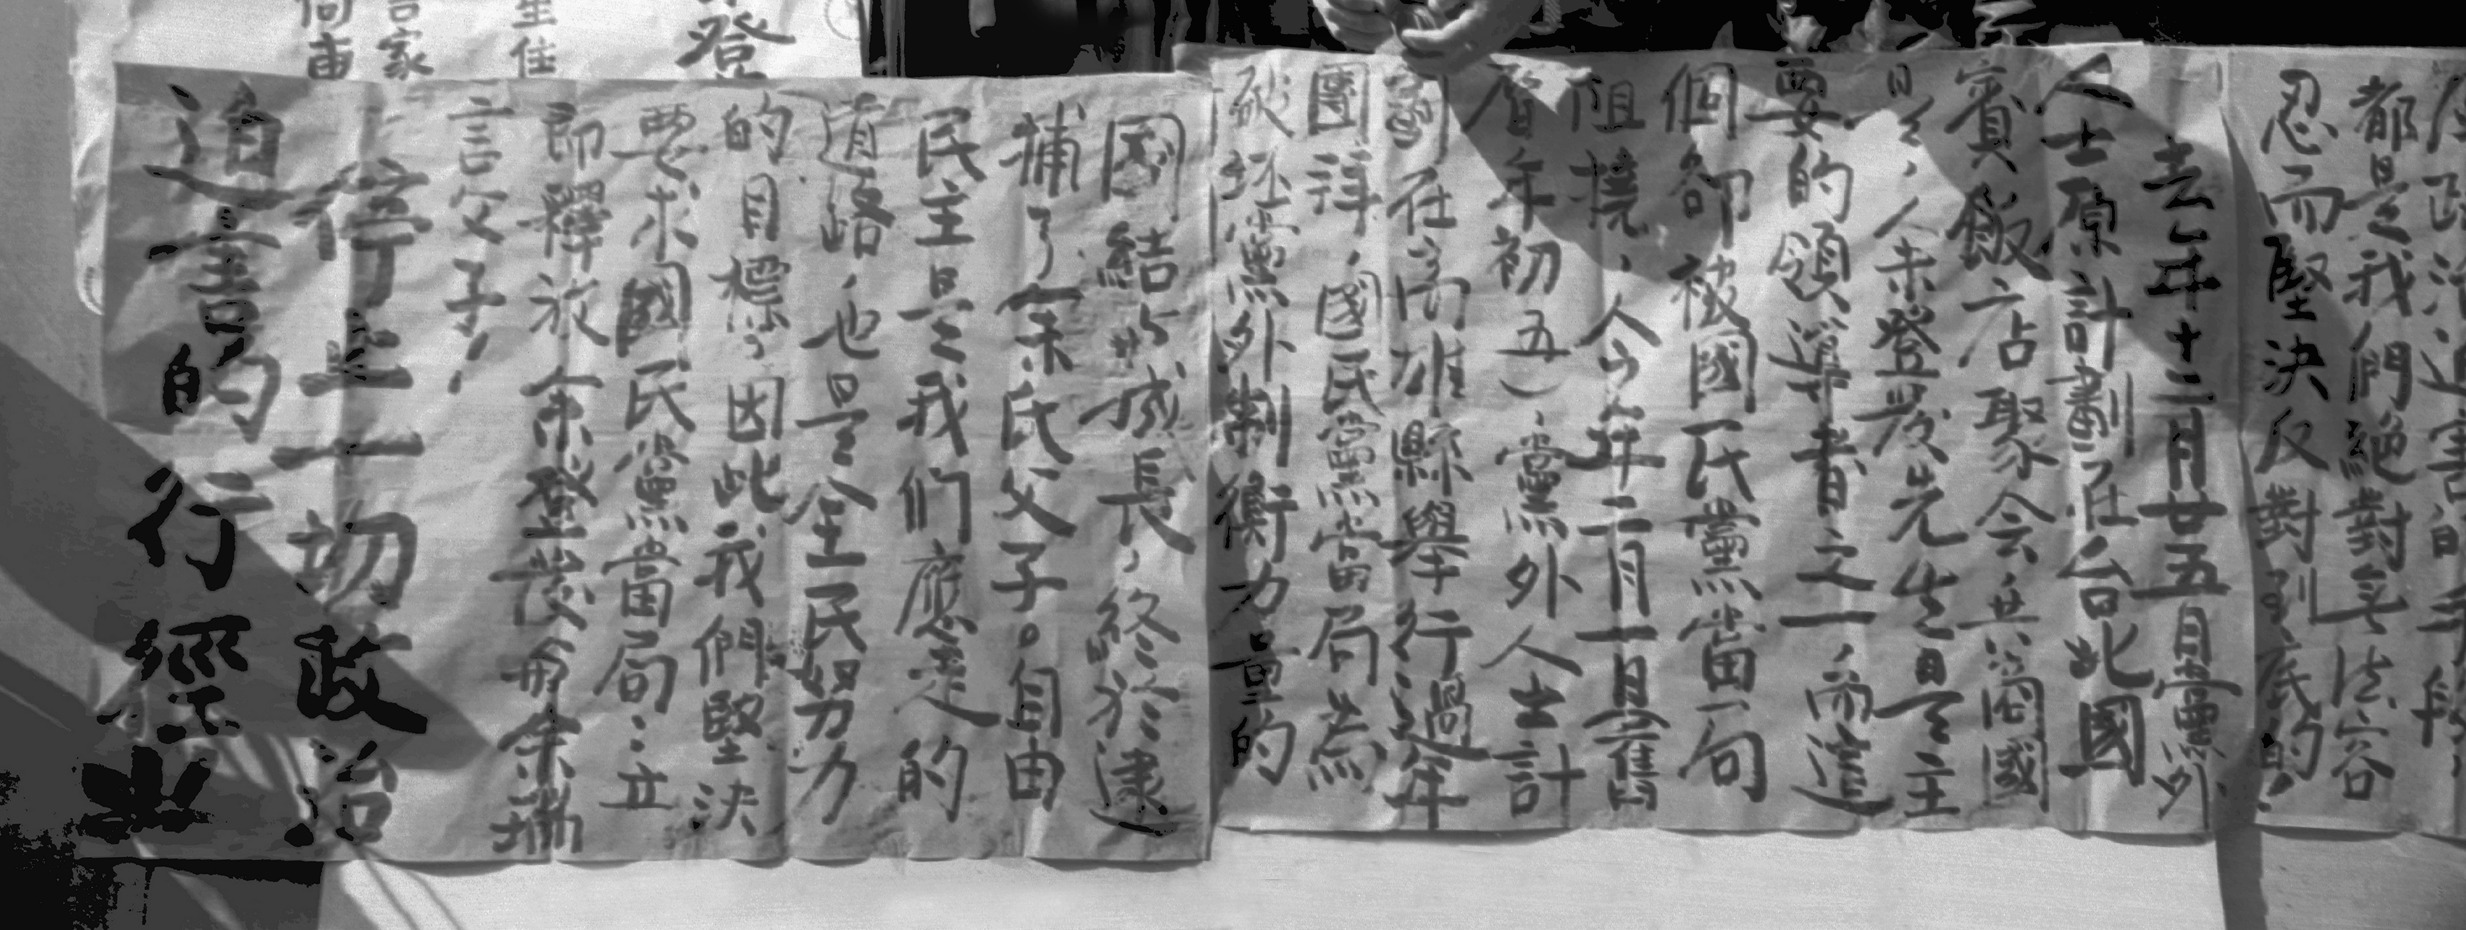 都是我們絕對無法容
忍而堅決反對到底的！
去年十二月廿五日黨外
人士原計劃在台北國
賓飯店聚会共商國
是，余登发先生是主
要的領導者之一，而這
個卻被國民黨當局
阻撓，今年二月一日（舊
曆年初五），黨外人士計
劃在高雄縣舉行過年
團拜，國民黨當局為
破坯黨外制衡力量的
團結与成長，終於逮
捕了余氏父子。自由
民主是我们應走的
道路，也是全民努力
的目標，因此我們堅決
要求國民黨當局：立
即釋放余登發俞余瑞
言父子！
停止一切政治
迫害的行徑
登
生佳